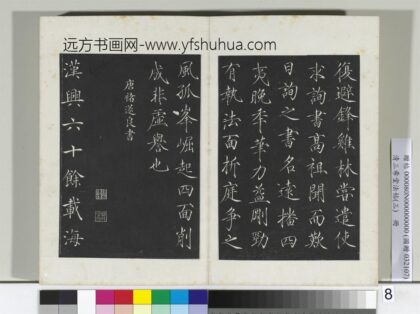 远方书画网-www.yfshuhua.com
復避鋒雞林嘗遣使
求詢書高祖聞而歎
曰詢之書名遠播四
夷晚年筆力益剛勁
有執法面折庭爭之
風孤峯崛起四面削
成非虛譽也
唐褚遂良書
漢興六十餘載海
清三希堂法帖(三) 冊
8